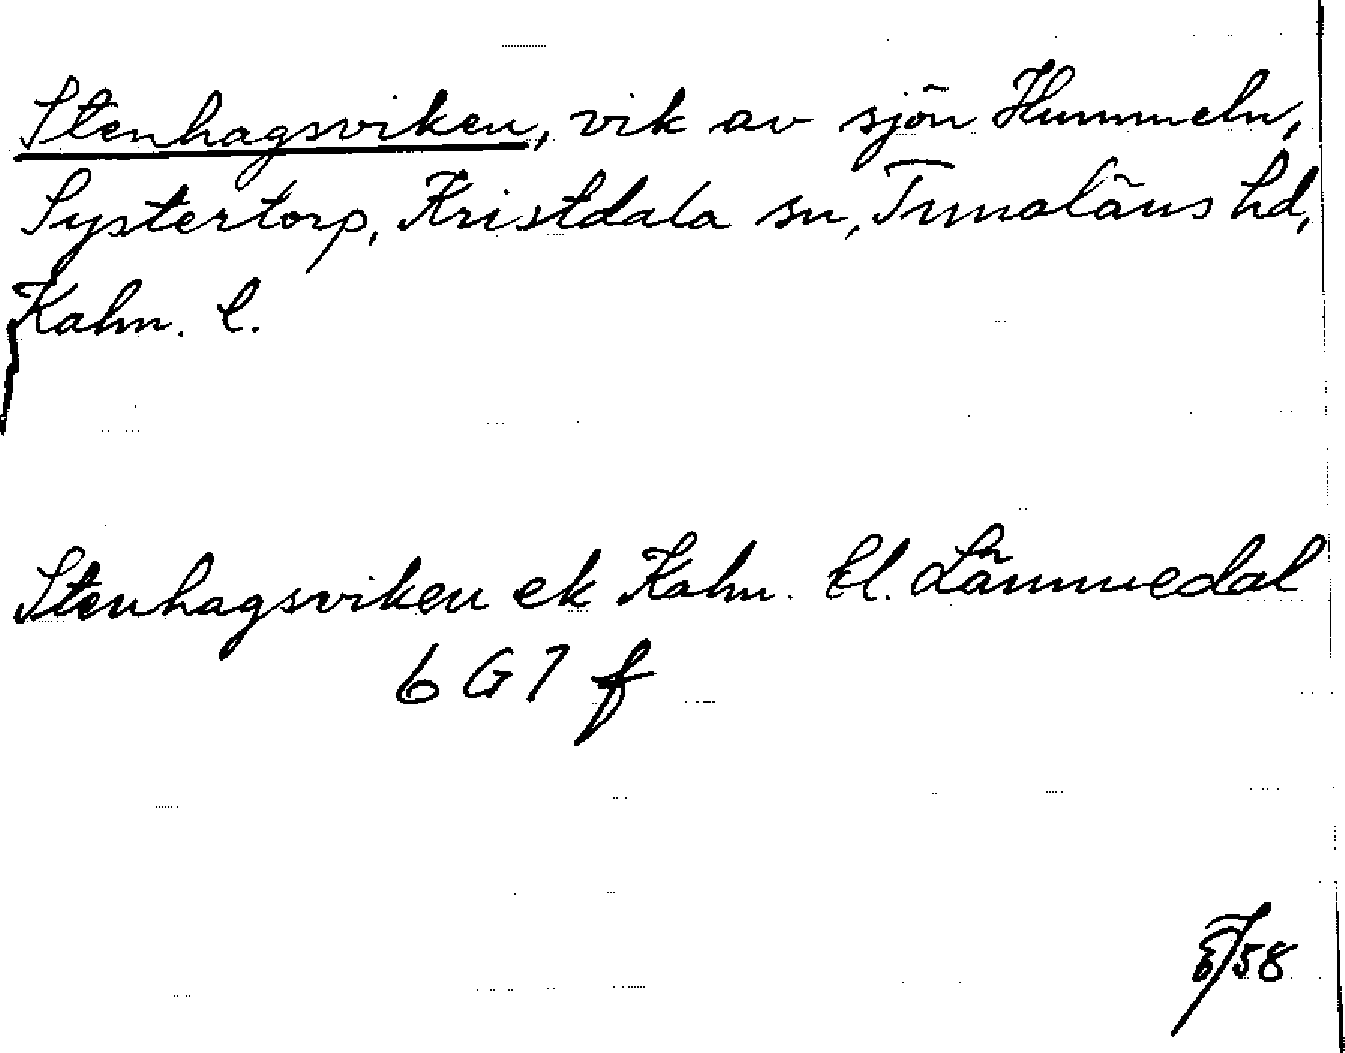 Stenhagsviken, vik av sjön Hummeln,
Systertorp, Kristdala sn, Tunaläns hd,
Kalm. l.
Stenhagsviken ek Kalm. bl. Lämmedal
6 G 7 f